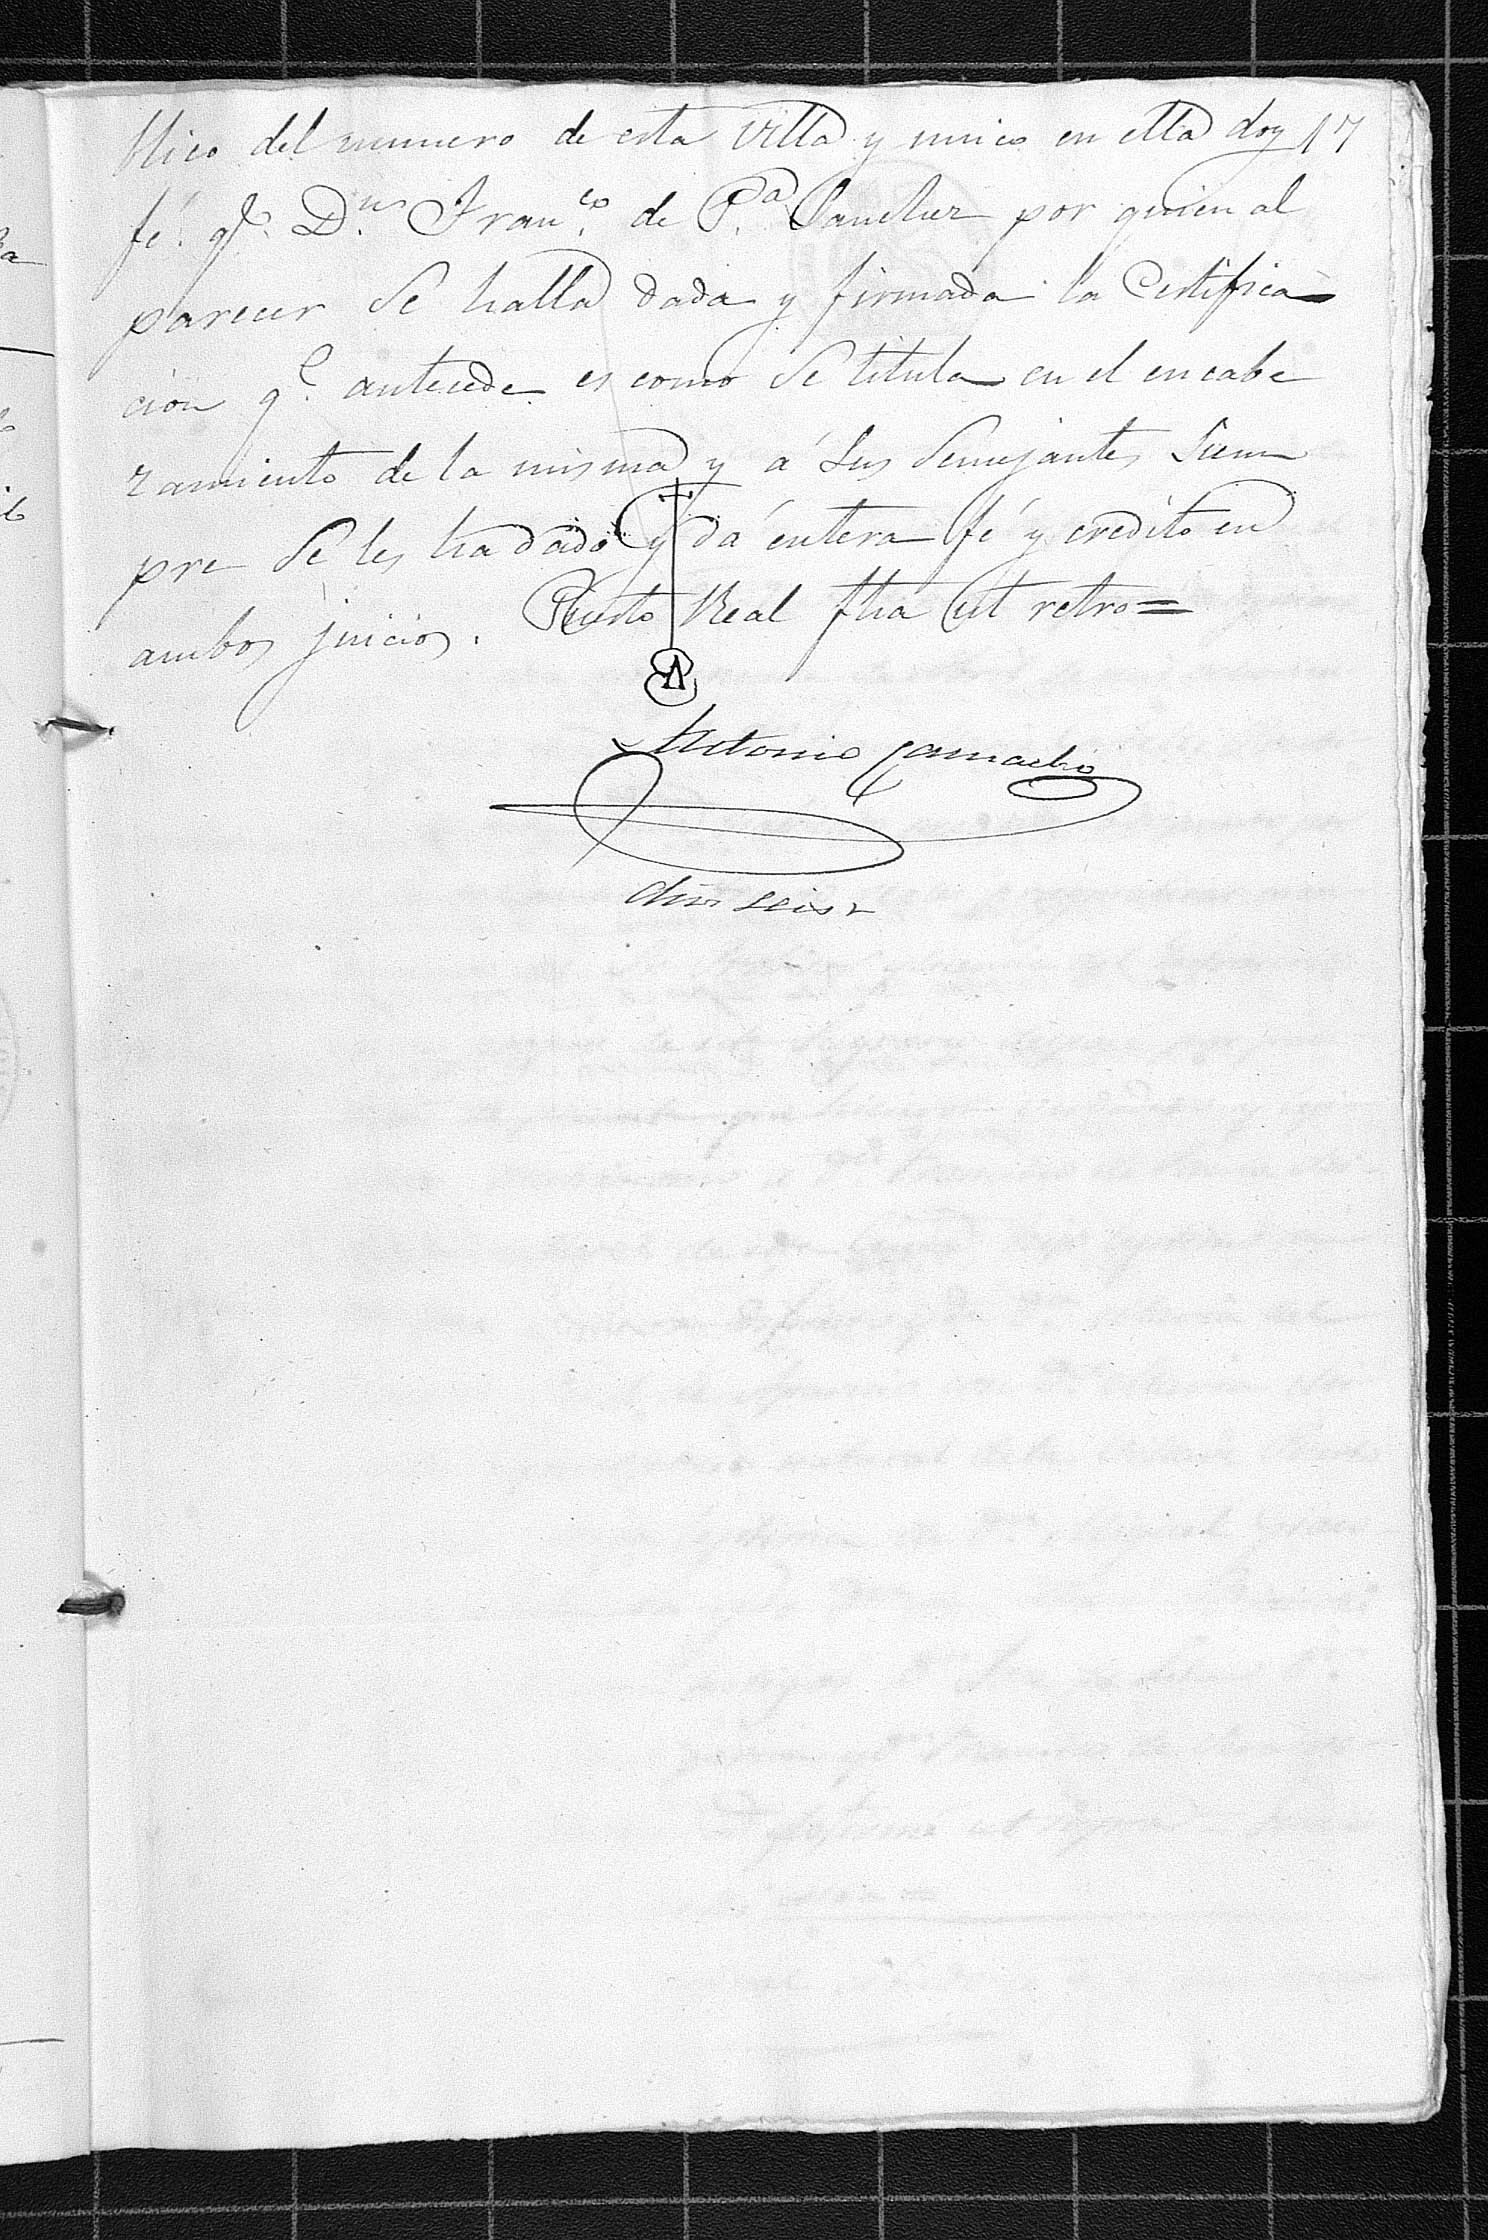 blico del numero de esta Villa y unico en ella doy 17
fé q.e D.n Fran.co de P.a Sanchez por quien al
parecer se halla dada y firmada la Certifica
cion q.e antecede es como se titula en el encabe
zamiento de la misma y a sus semejantes siem
pre se les ha dado y dá entera fé y credito en
ambos juicios. Puerto Real fha ut retro=
Antonio Camacho
dros seis r